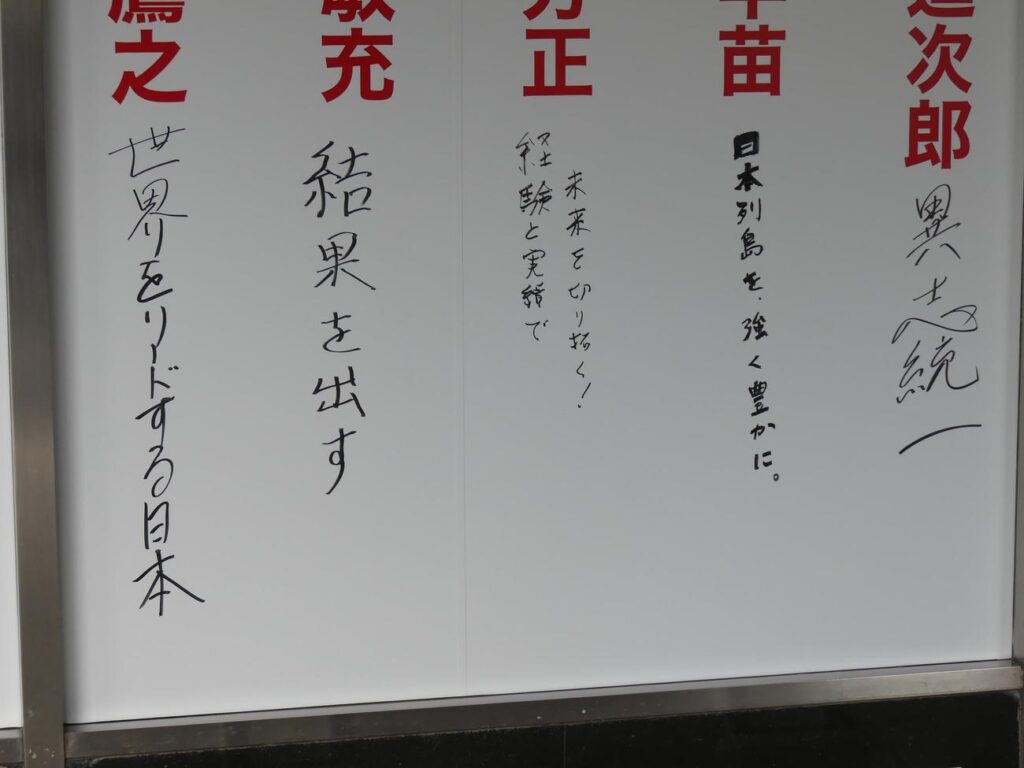 進次郎
異志統一
苗
日本列島を、強く豊かに。
正
経験と実績で
未来を切り拓く!
敏充
結果を出す
鷹之
世界をリードする日本